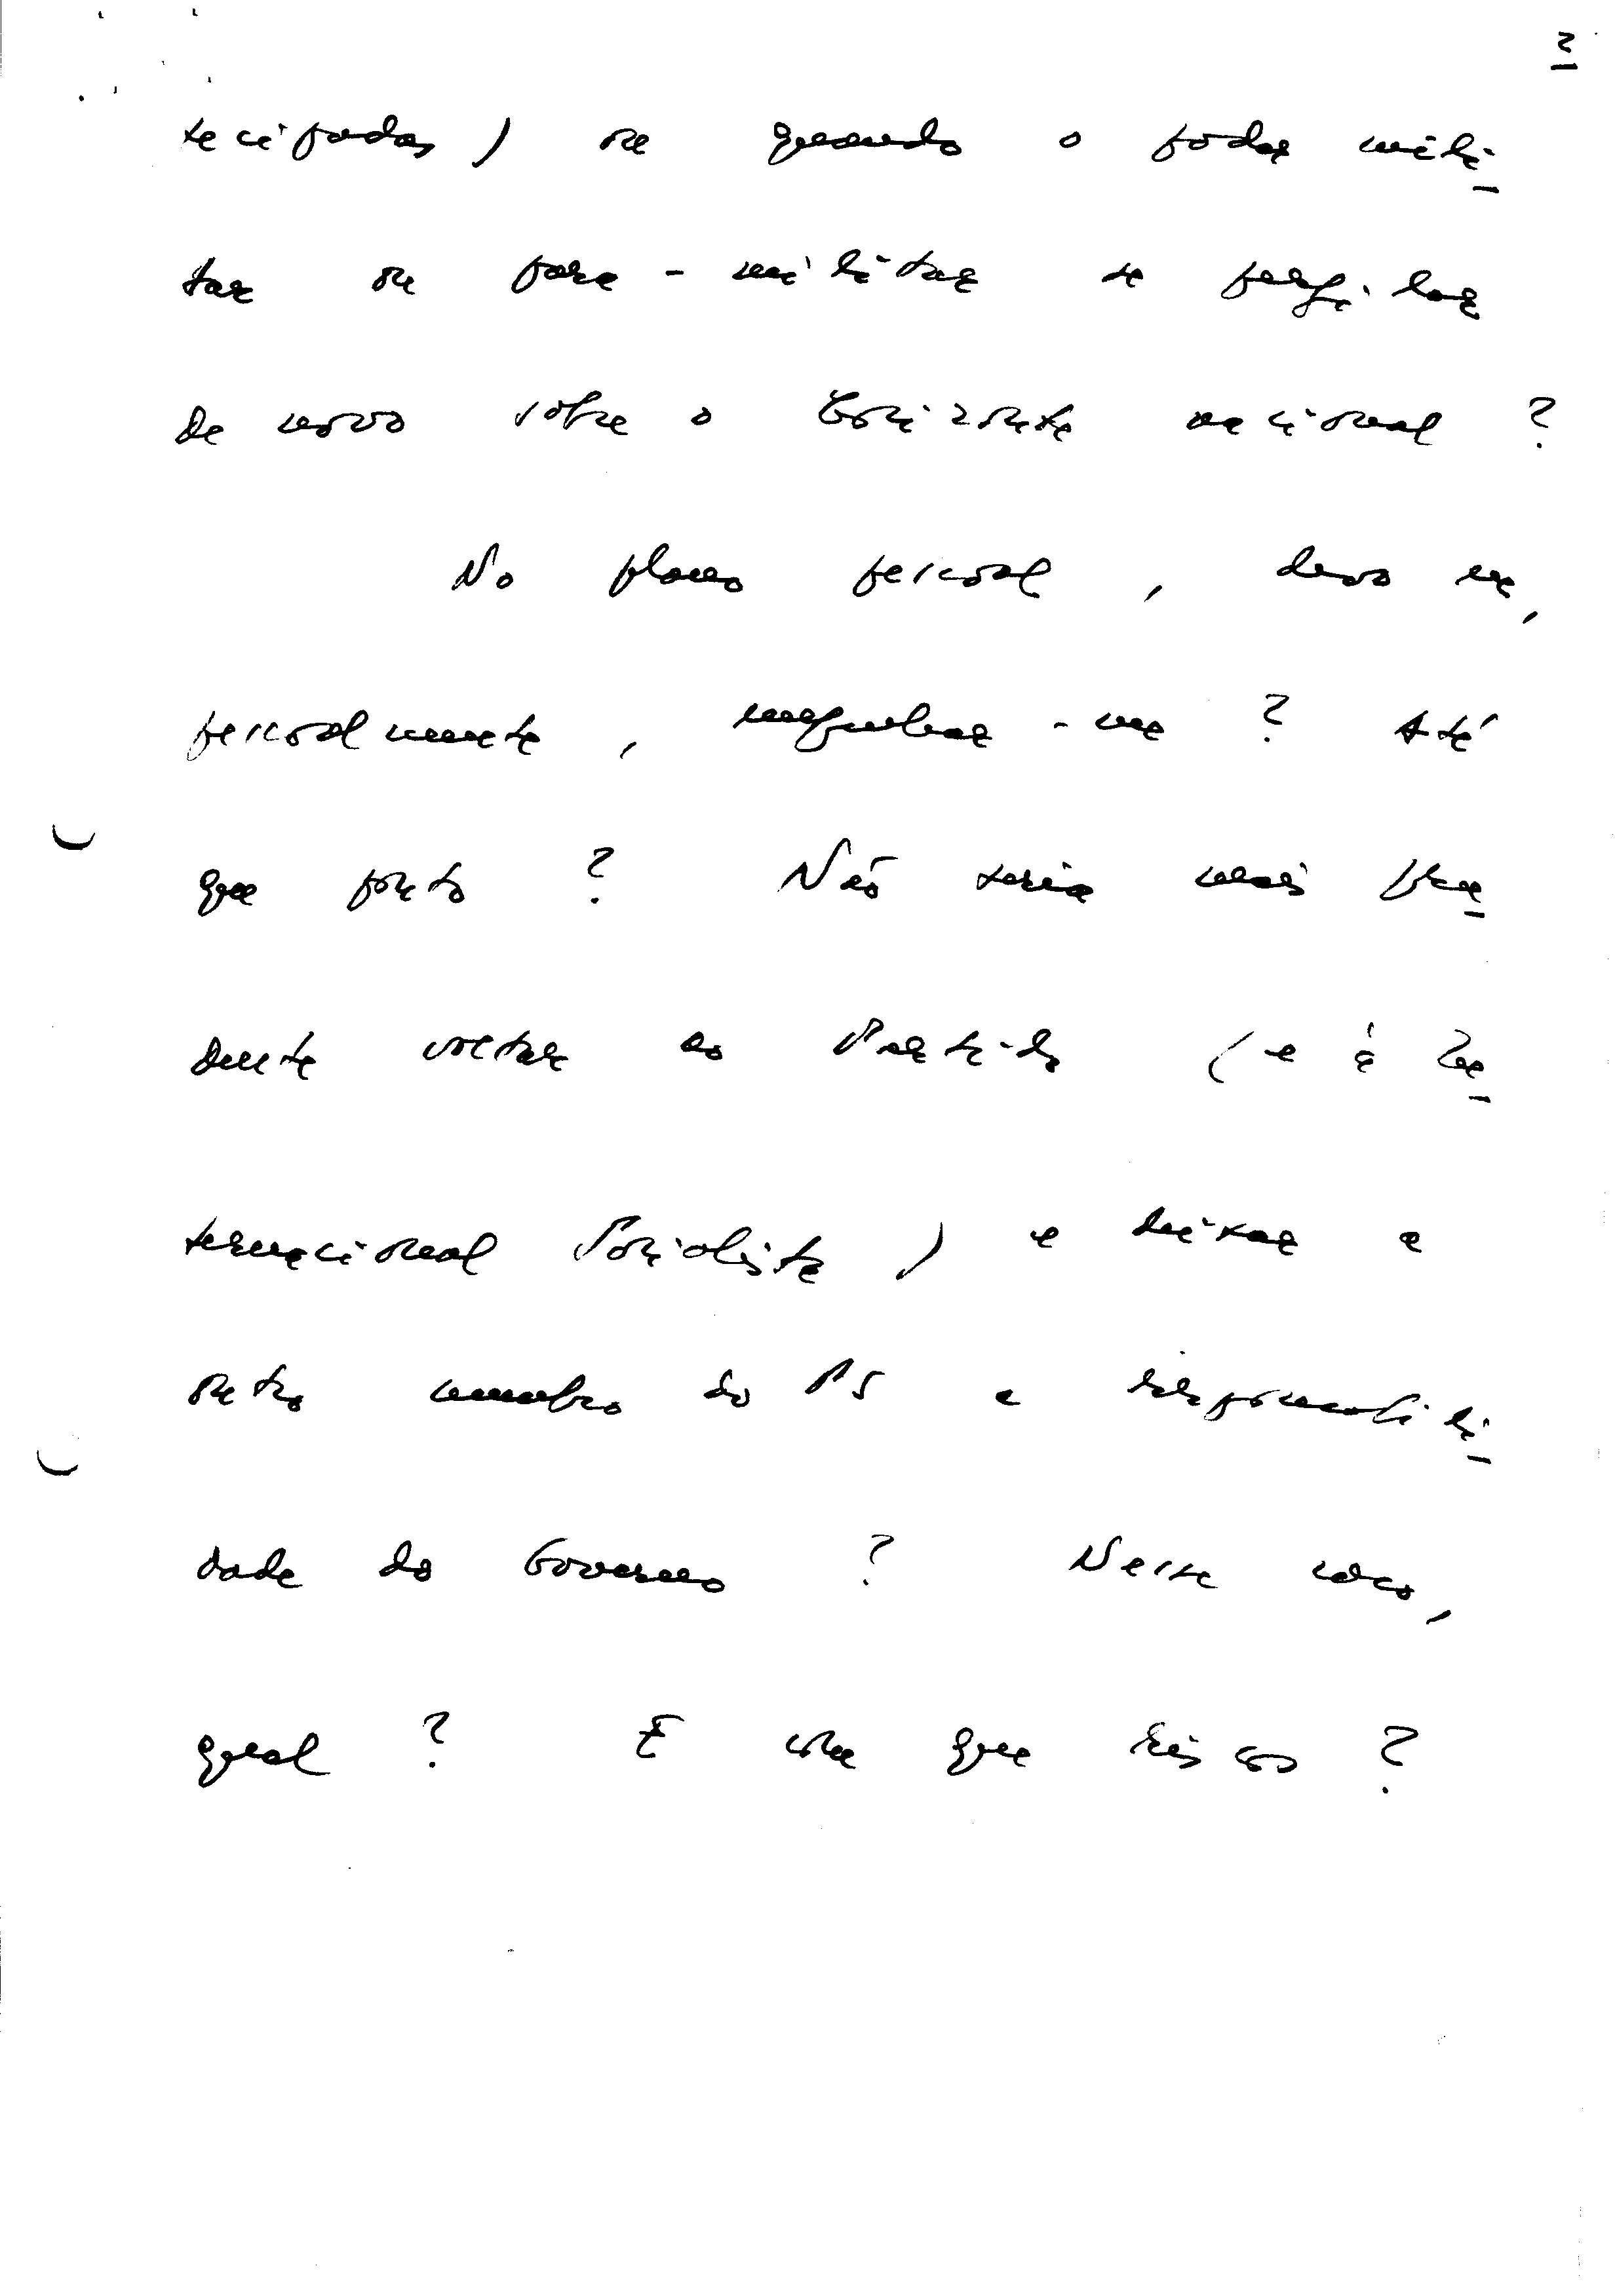 2
tecipadas) ou quando o poder mili-
tar ou para-militar se perfilar
de novo sobre o horizonte nacional?
No plano pessoal, devo eu,
pessoalmente, mergulhar-me? Até
que ponto? Não seria mais pru-
dente voltar ao Partido (e à In-
ternacional Socialista) e deixar a
outro membro do PS a responsabili-
dade do Governo? Nesse caso,
qual? E com que riscos?